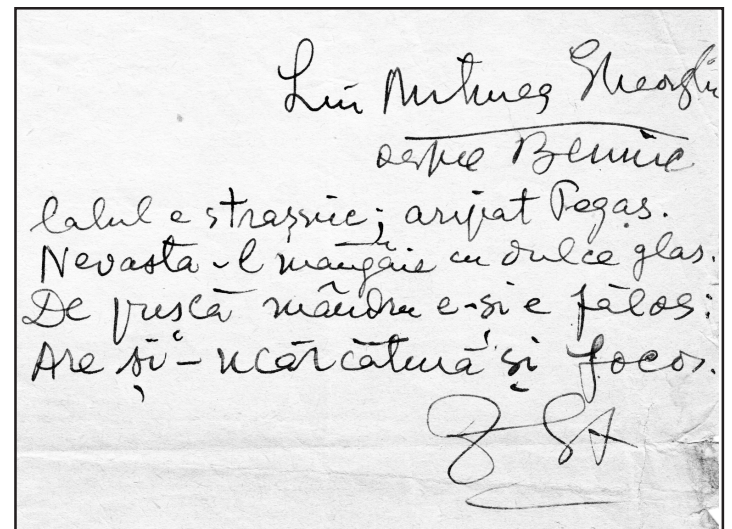 Lui Mutneg Gheorghe
despre Bennie
Calul e strașnic; aripat Pegas.
Nevasta-l mângâie cu dulce glas.
De pușcă mândru e-și e fălos:
Are și-ncărcătură și focos.